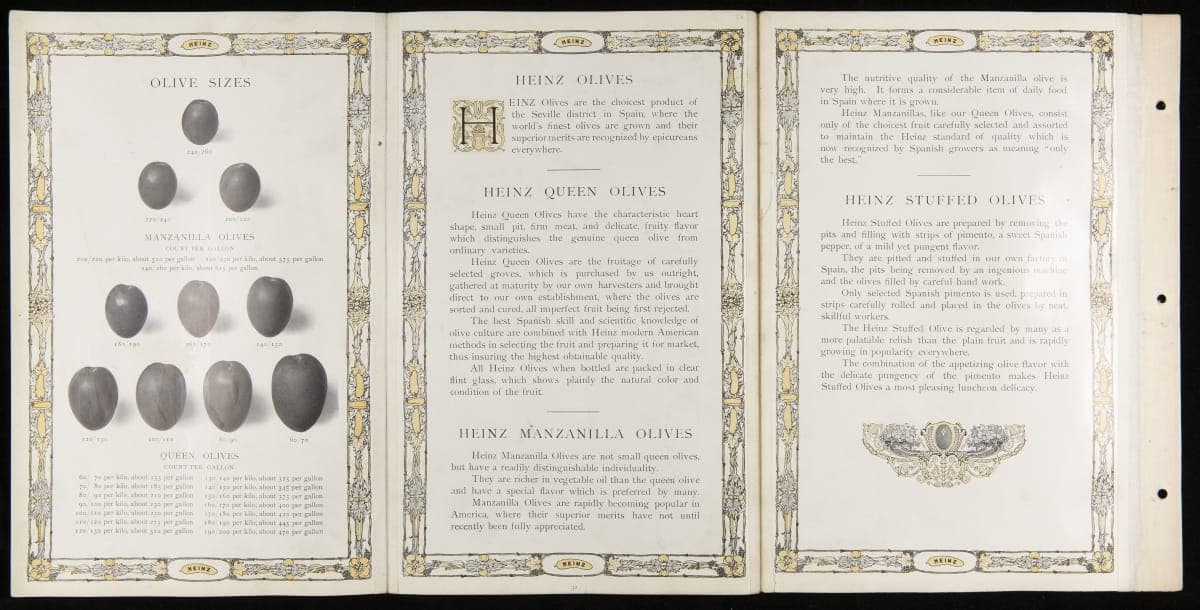 HEINZ
OLIVE SIZES
240/260
220/240
200/220
MANZANILLA OLIVES
COUNT PER GALLON
200/220 per kilo, about 520 per gallon
per kilo, about 575 per gallon
240/260 per kilo, about 625 per gallon
180/190
160/170
140/150
120/130
100/110
80/90
60/70
QUEEN OLIVES
COUNT PER GALLON
60/ 70 per kilo, about 155 per gallon
70/ 80 per kilo, about 185 per gallon
80/ 90 per kilo, about 210 per gallon
90/100 per kilo, about 230 per gallon
100/110 per kilo, about 250 per gallon
110/120 per kilo, about 275 per gallon
120/130 per kilo, about 300 per gallon
130/140 per kilo, about 325 per gallon
140/150 per kilo, about 345 per gallon
150/160 per kilo, about 375 per gallon
160/170 per kilo, about 400 per gallon
170/180 per kilo, about 420 per gallon
180/190 per kilo, about 445 per gallon
190/200 per kilo, about 470 per gallon
HEINZ
HEINZ
HEINZ OLIVES
HEINZ Olives are the choicest product of
the Seville district in Spain, where the
world's finest olives are grown and their
superior merits are recognized by epicureans
everywhere.
HEINZ QUEEN OLIVES
Heinz Queen Olives have the characteristic heart
shape, small pit, firm meat, and delicate, fruity flavor
which distinguishes the genuine queen olive from
ordinary varieties.
Heinz Queen Olives are the fruitage of carefully
selected groves, which is purchased by us outright,
gathered at maturity by our own harvesters and brought
direct to our own establishment, where the olives are
sorted and cured, all imperfect fruit being first rejected.
The best Spanish skill and scientific knowledge of
olive culture are combined with Heinz modern American
methods in selecting the fruit and preparing it for market,
thus insuring the highest obtainable quality.
All Heinz Olives when bottled are packed in clear
flint glass, which shows plainly the natural color and
condition of the fruit.
HEINZ MANZANILLA OLIVES
Heinz Manzanilla Olives are not small queen olives,
but have a readily distinguishable individuality.
They are richer in vegetable oil than the queen olive
and have a special flavor which is preferred by many.
Manzanilla Olives are rapidly becoming popular in
America, where their superior merits have not until
recently been fully appreciated.
HEINZ
HEINZ
The nutritive quality of the Manzanilla olive is
very high. It forms a considerable item of daily food
in Spain where it is grown.
Heinz Manzanillas, like our Queen Olives, consist
only of the choicest fruit carefully selected and assorted
to maintain the Heinz standard of quality which is
now recognized by Spanish growers as meaning "only
the best."
HEINZ STUFFED OLIVES
Heinz Stuffed Olives are prepared by removing the
pits and filling with strips of pimento, a sweet Spanish
pepper, of a mild yet pungent flavor.
They are pitted and stuffed in our own factory in
Spain, the pits being removed by an ingenious machine
and the olives filled by careful hand work.
Only selected Spanish pimento is used, prepared in
strips carefully rolled and placed in the olives by neat,
skillful workers.
The Heinz Stuffed Olive is regarded by many as a
more palatable relish than the plain fruit and is rapidly
growing in popularity everywhere.
The combination of the appetizing olive flavor with
the delicate pungency of the pimento makes Heinz
Stuffed Olives a most pleasing luncheon delicacy.
HEINZ